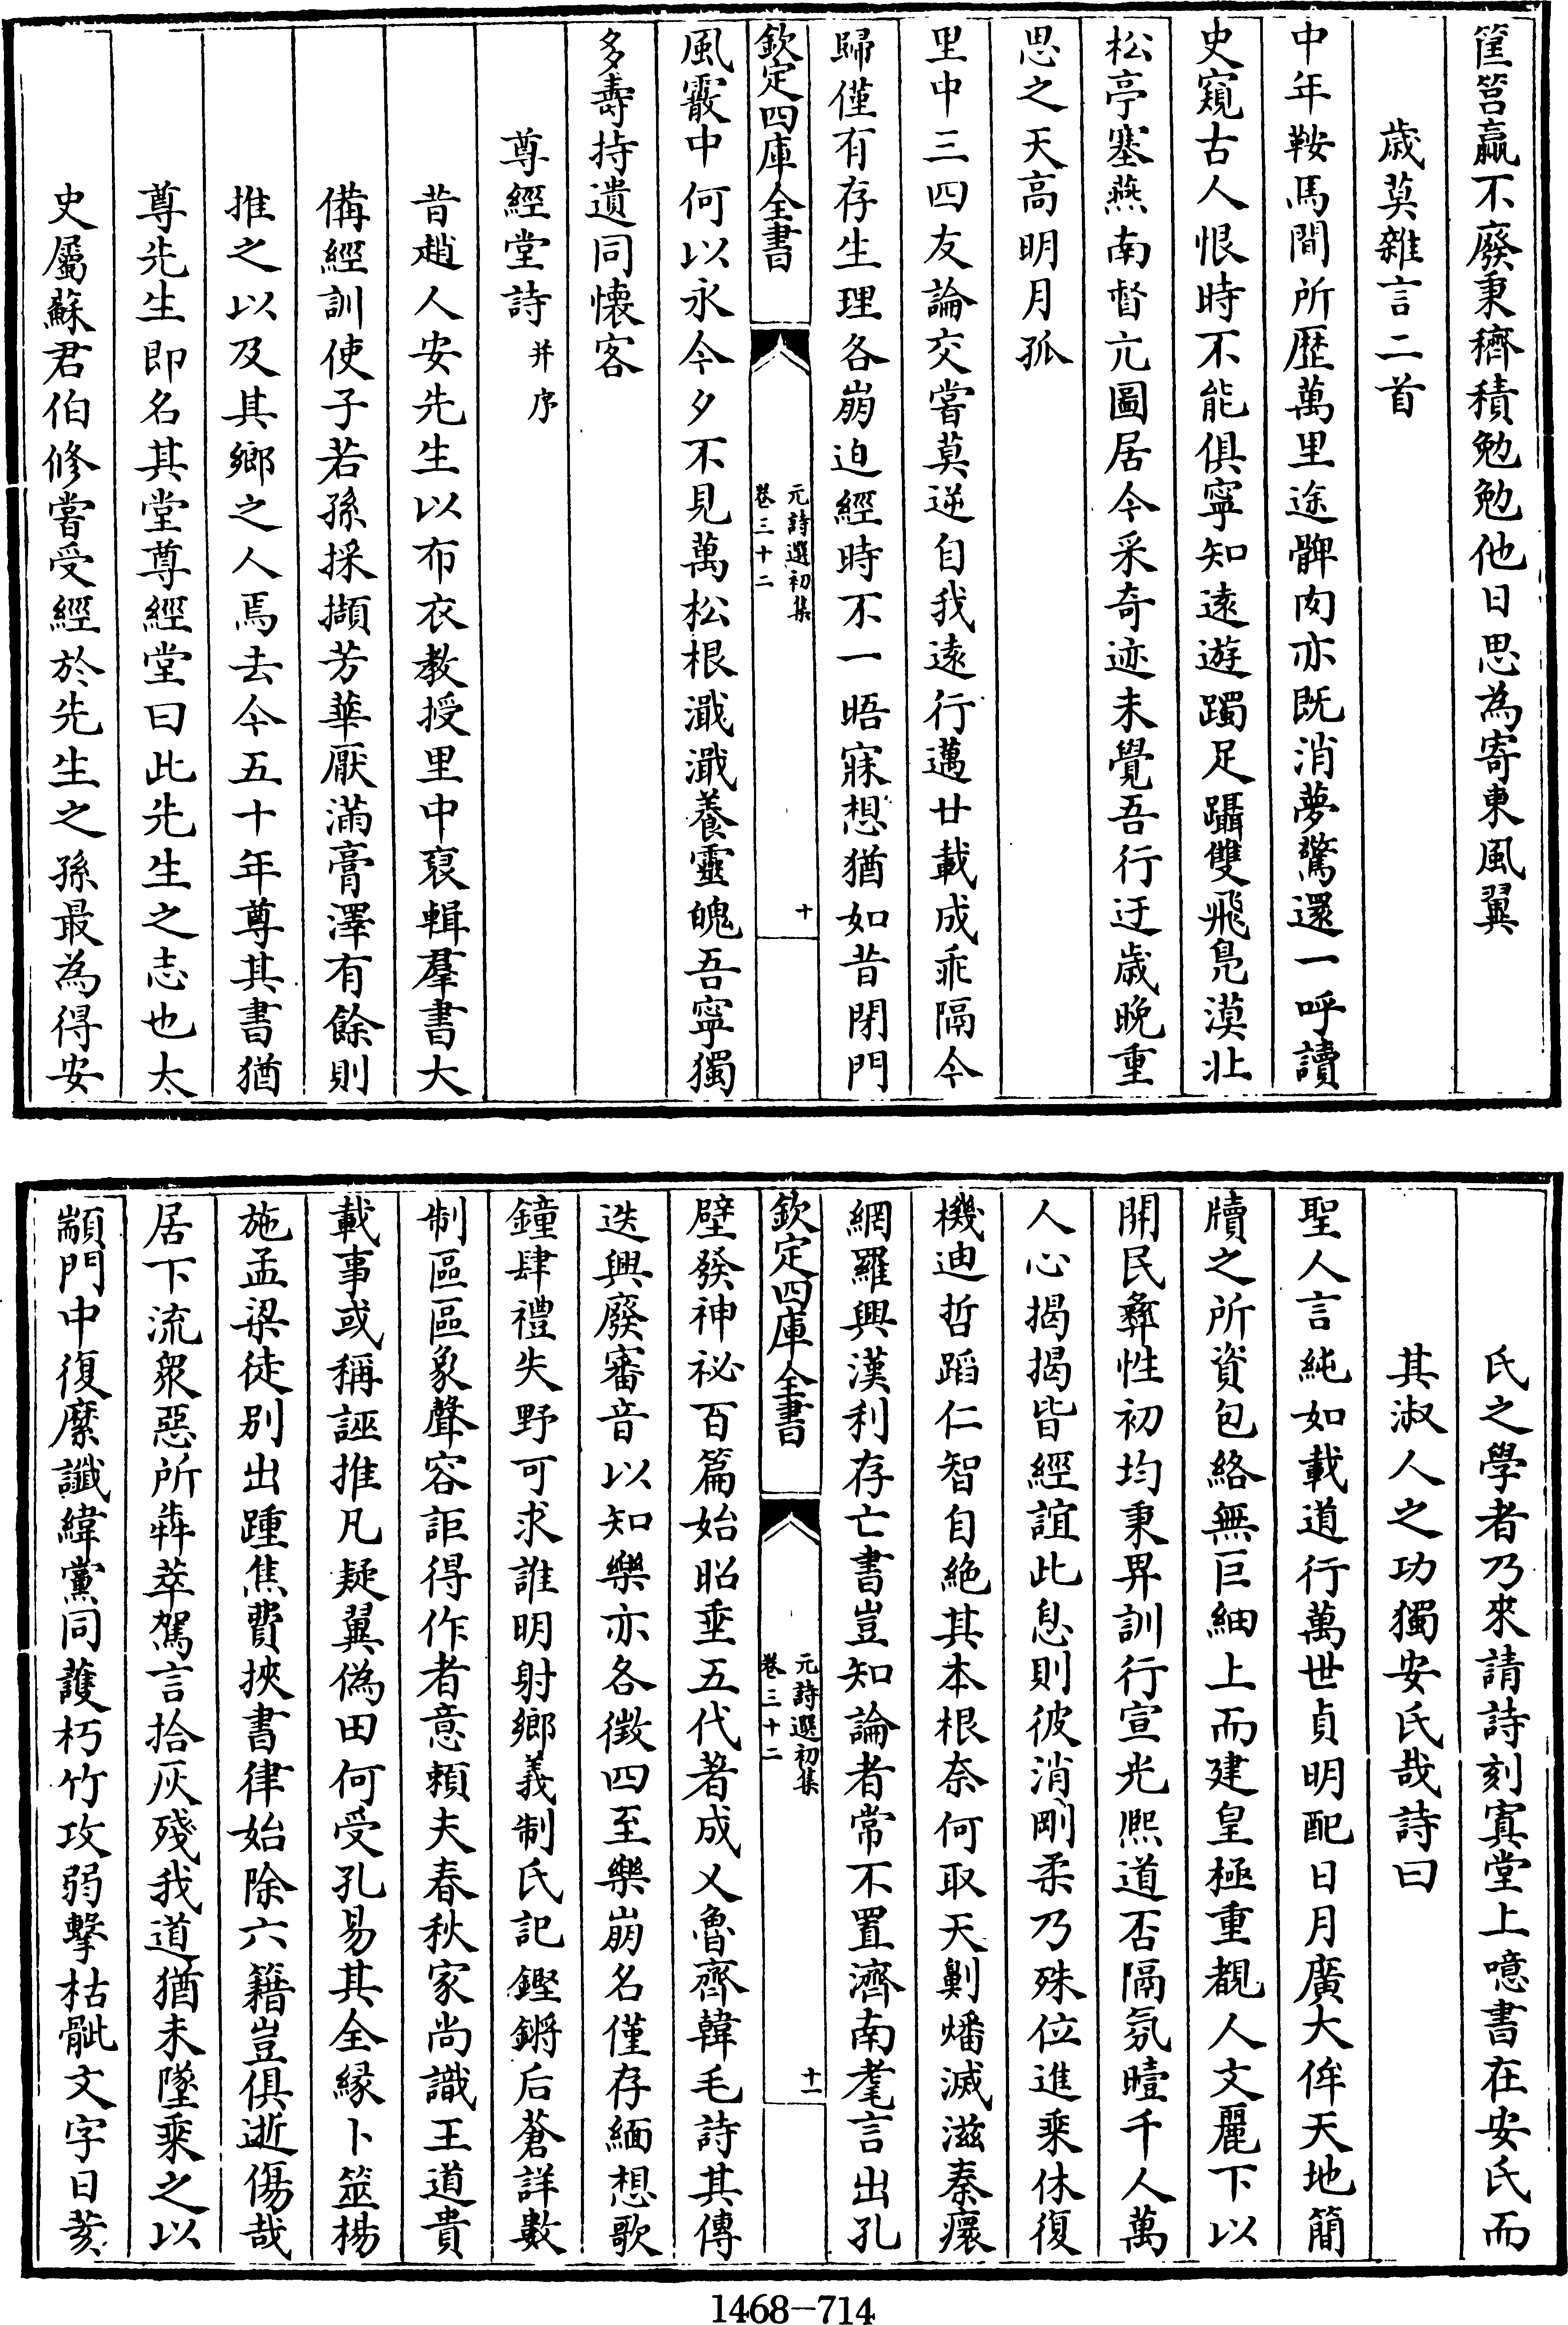 筐筥贏不廢秉穧積勉勉他日思為寄東風翼
歲莫雜言二首
中年鞍馬間所歴萬里途髀肉亦既消夢驚還一呼讀
史窺古人恨時不能俱寧知遠遊躅足躡雙飛鳧漠北
松亭塞燕南督亢圖居今采奇迹未覺吾行迂歲晚重
思之天高明月孤
里中三四友論交嘗莫逆自我遠行邁廿載成乖隔今
歸僅有存生理各崩迫經時不一晤寐想猶如昔閉門
欽定四庫全書
元詩選初集
卷三十二
十
風霰中何以永今夕不見萬松根濈濈養靈魄吾寧獨
多壽持遺同懷客
尊經堂詩并序
昔趙人安先生以布衣教授里中裒輯羣書大
備經訓使子若孫採擷芳華厭滿膏澤有餘則
推之以及其鄉之人焉去今五十年尊其書猶
尊先生即名其堂尊經堂曰此先生之志也太
史屬蘇君伯修嘗受經於先生之孫最為得安
氏之學者乃來請詩刻寘堂上噫書在安氏而
其淑人之功獨安氏哉詩曰
聖人言純如載道行萬世貞明配日月廣大侔天地簡
牘之所資包絡無巨細上而建皇極重覩人文麗下以
開民彝性初均秉畀訓行宣光熙道否隔氛曀千人萬
人心揭揭皆經誼此息則彼消剛柔乃殊位進乘休復
機迪哲蹈仁智自絶其本根奈何取天劓燔滅滋秦癏
網羅興漢利存亡書豈知論者常不置濟南耄言出孔
欽定四庫全書
元詩選初集
卷三十二
十一
壁發神祕百篇始昭垂五代著成乂魯齊韓毛詩其傳
迭興廢審音以知樂亦各徴四至樂崩名僅存緬想歌
鐘肆禮失野可求誰明射鄉義制氏記鏗鏘后蒼詳數
制區區象聲容詎得作者意賴夫春秋家尚識王道貴
載事或稱誣推凡疑翼偽田何受孔易其全緣卜筮楊
施孟梁徒别出踵焦費挾書律始除六籍豈俱逝傷哉
居下流衆惡所犇萃駕言拾灰殘我道猶未墜乘之以
顓門中復縻讖緯黨同護朽竹攻弱擊枯骴文字日芟
1468-714